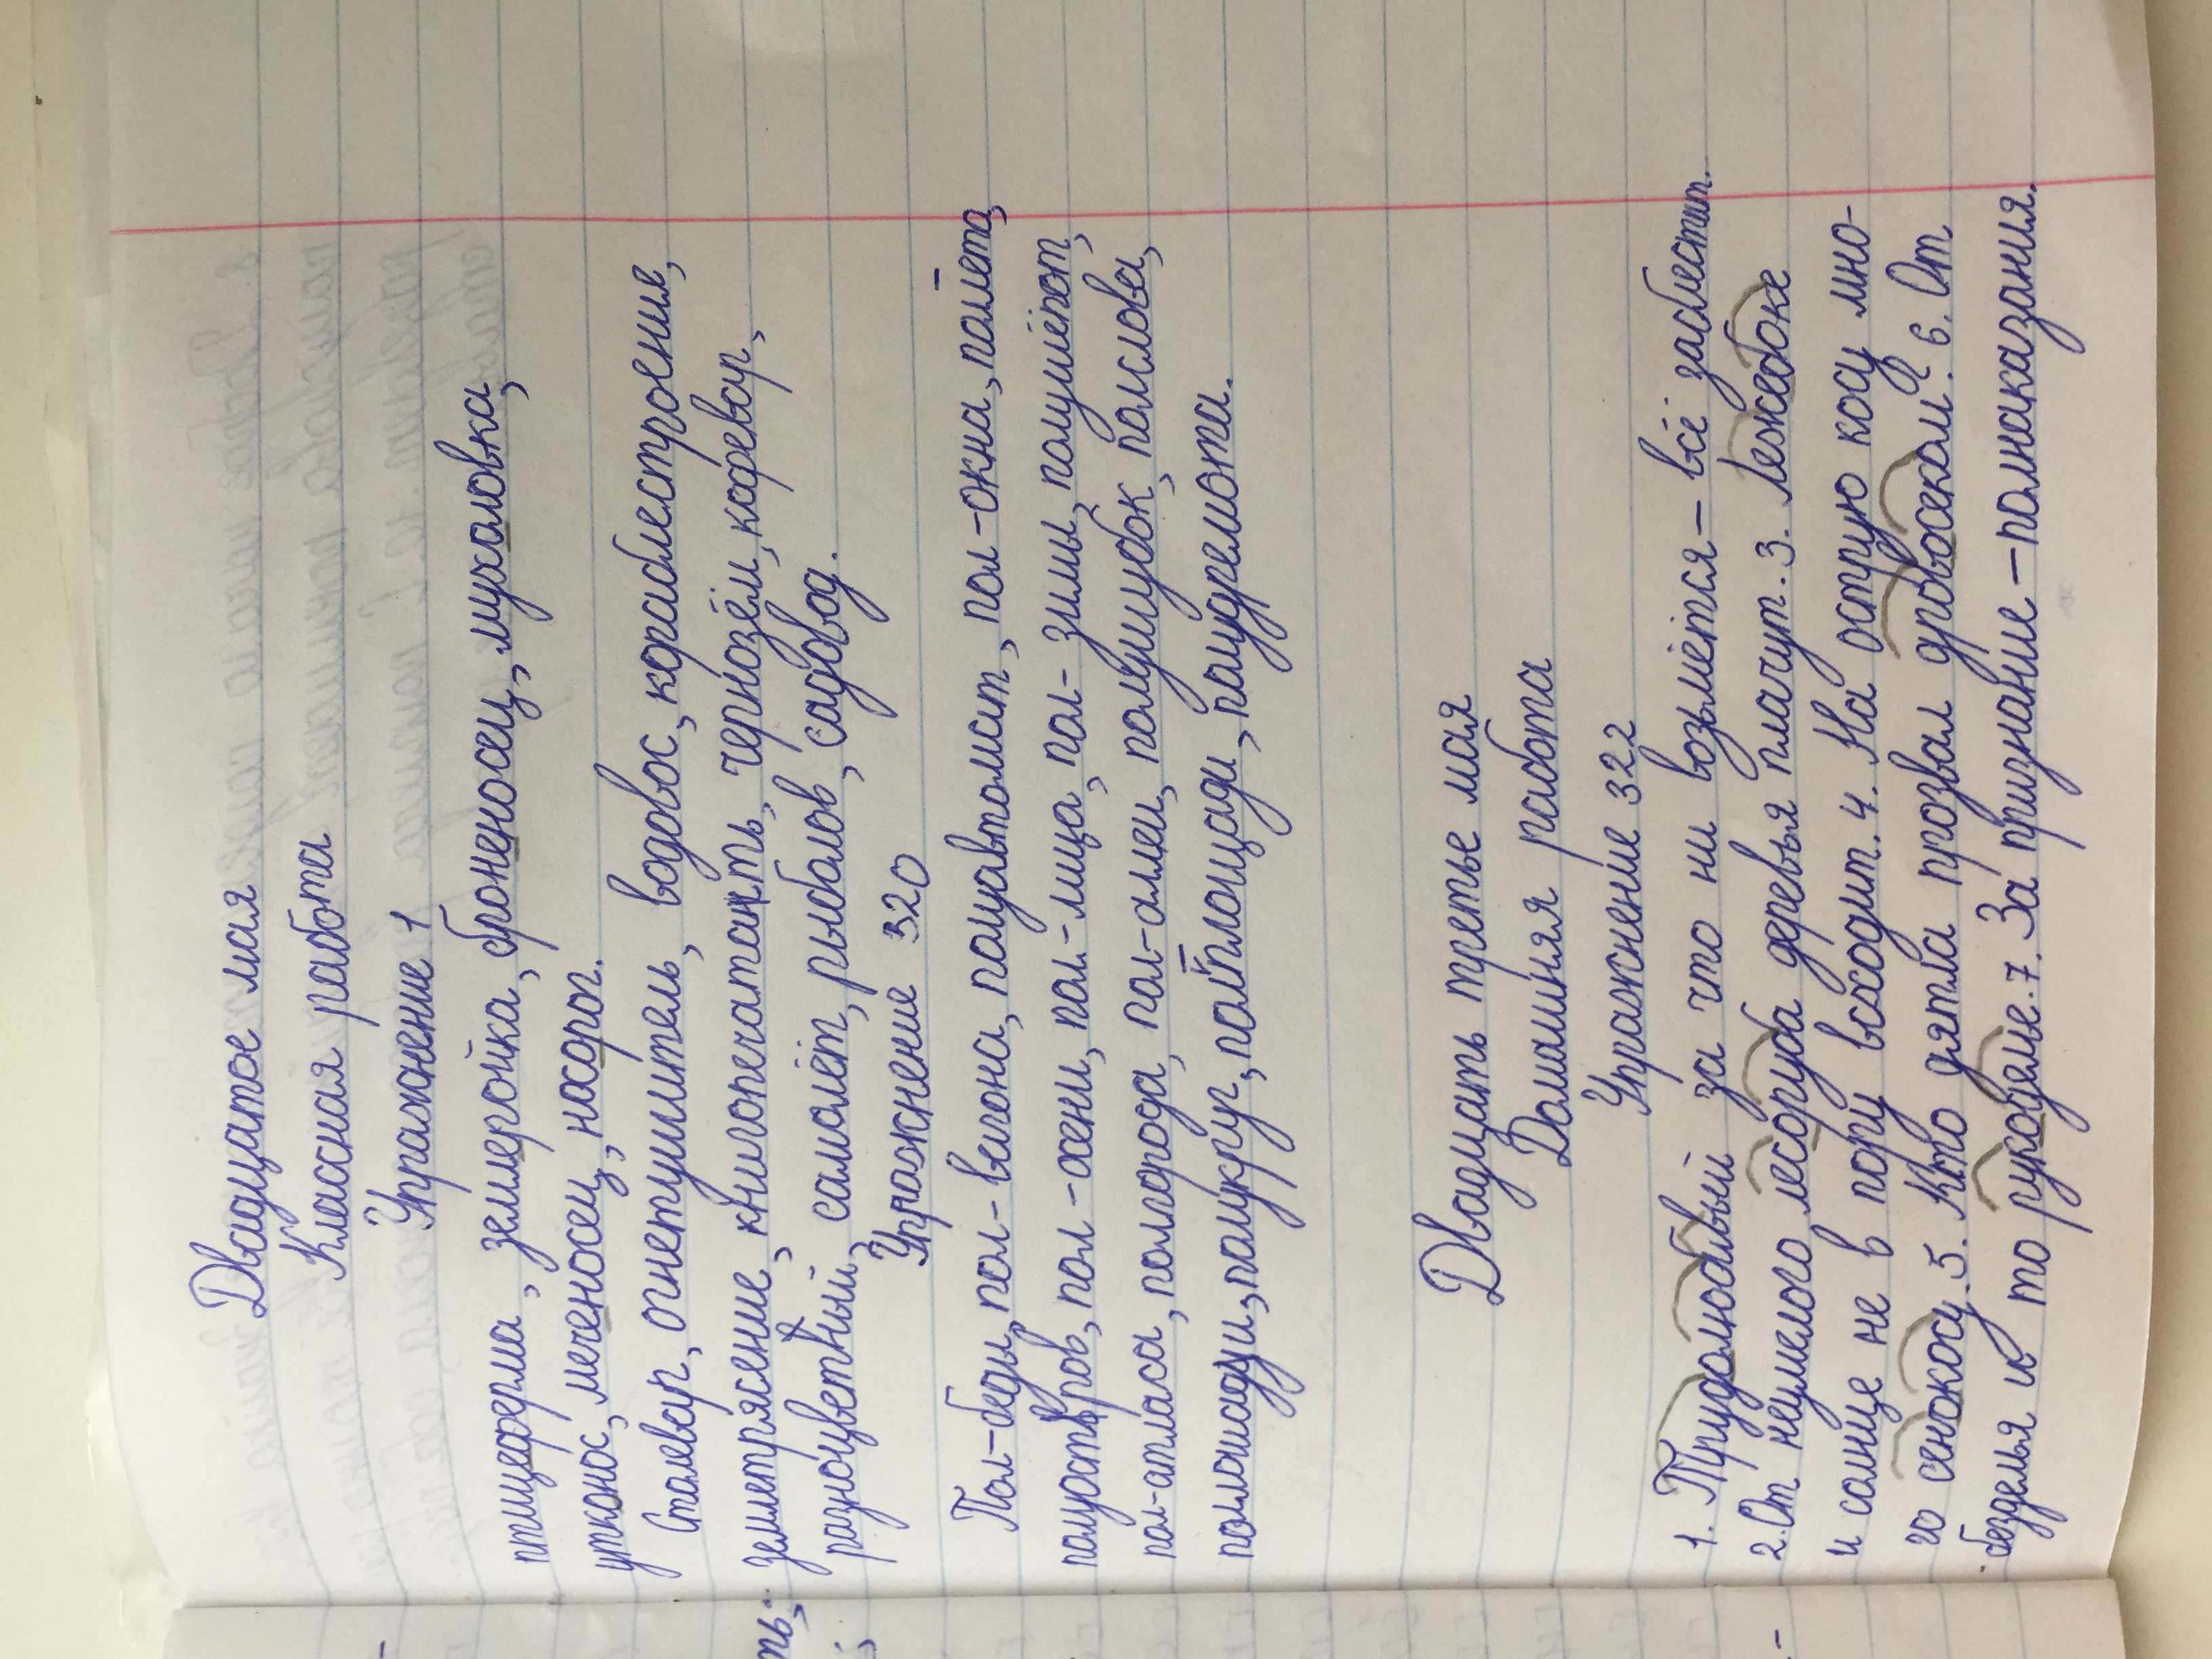 Двадцатое мая
Классная работа
Упражнение 1
птицеферма, землеройка, броненосец, мухоловка,
утконос, меченосец, носорог.
Сталевар, огнетушитель, водовоз, кораблестроение,
землетрясение, книгопечатать, чернозём, кофевар,
разноцветный, самолёт, рыболов, садовод.
Упражнение 320
Пол-беды, пол-вагона, полуавтомат, пол-окна, пол-лета,
полуостров, пол-осени, пол-лица, пол-зимы, полушёпот,
пол-атласа, полгорода, пол-аллеи, полушубок, полслова,
полукруг, полплощади, полудремота.
Двадцать третье мая
Домашняя работа
Упражнение 322
1. Трудолюбивый за что ни возьмётся – всё заблестит.
2. От неумелого лесоруба деревья плачут. 3. Лежебоке
и солнце не в пору всходит. 4. На острую косу мно-
го сенокосу. 5. Кто дятла прозвал дровосеком? 6. От
безделья и то рукоделье. 7. За признание – полнаказания.
ть;
;
-
-